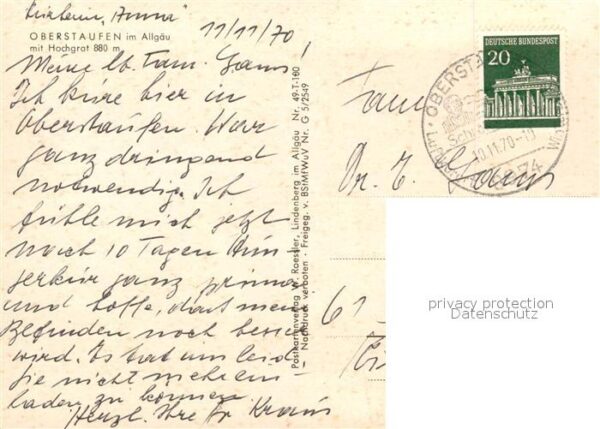 11/11/70
OBERSTAUFEN im Allgäu
mit Hochgrat 880 m
Meine lb. Fam. Gans!
Ich küre hier in
Oberstaufen. War
ganz dringend
notwendig. Ich
fühle mich jetzt
nach 10 Tagen Hun
gerkur ganz prima
und hoffe, dass mein
Befinden noch besser
wird. Es tat uns leid
Sie nicht mehr ein
laden zu können
Herzl. Ihre Kraus
Postkartenverlag W. Roessler, Lindenberg im Allgäu Nr. 49-T-180
Nachdruck verboten - Freigeg. v. BStMfWuV Nr. G 5/2549
DEUTSCHE BUNDESPOST
20
OBERSTAUFEN
10.11.70-19
Fam
Dr. E. Gans
61
privacy protection
Datenschutz